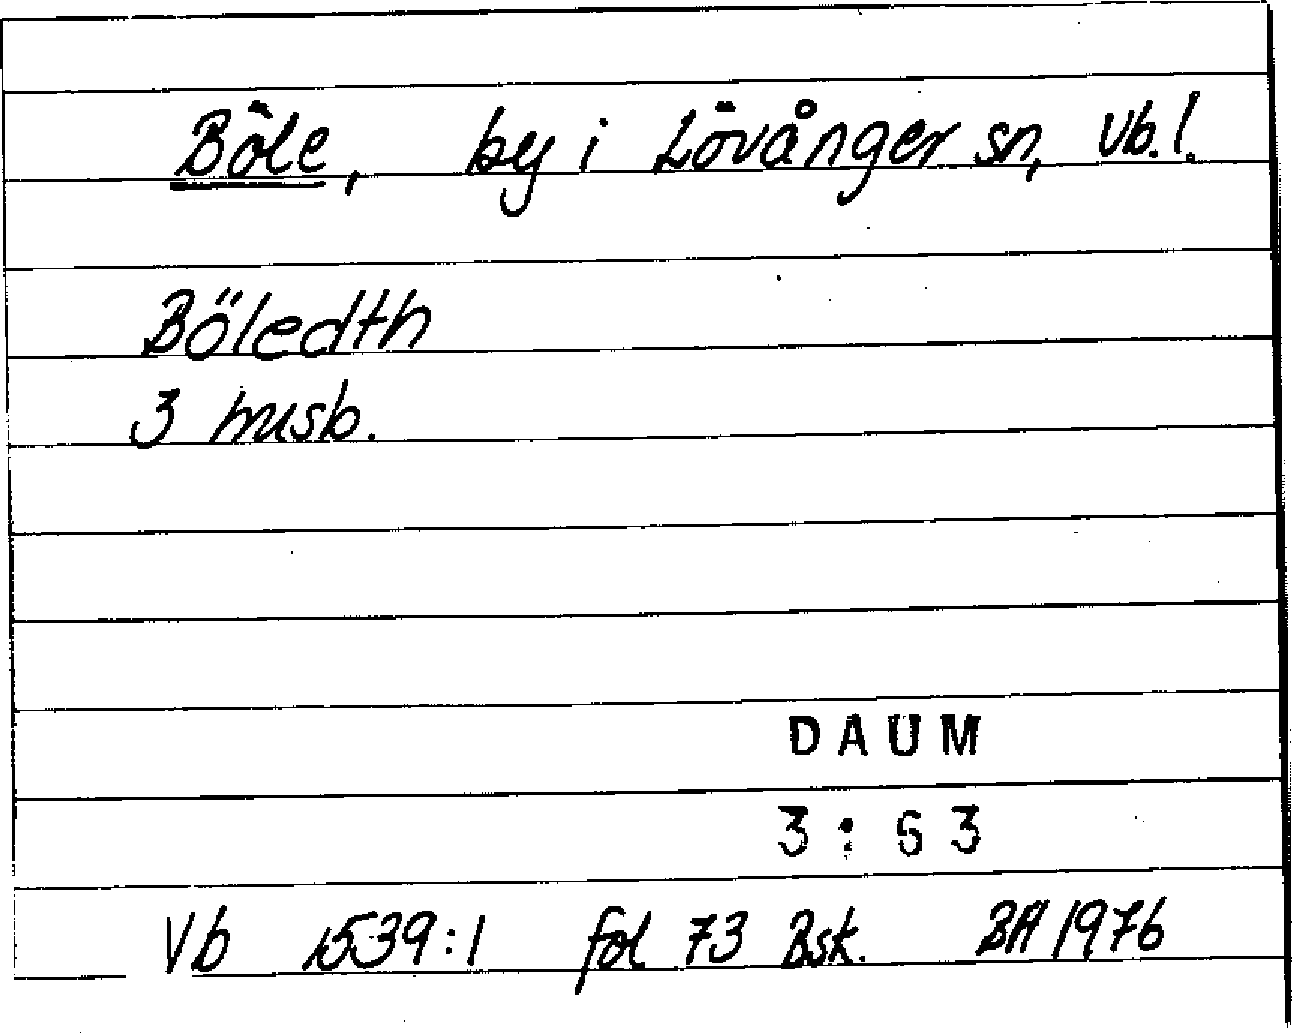 Böle, by i Lövånger sn, Vb.l.
Böledth
3 husb.
DAUM
3:63
Vb 1539:1 fol 73 Bsk. BH 1976